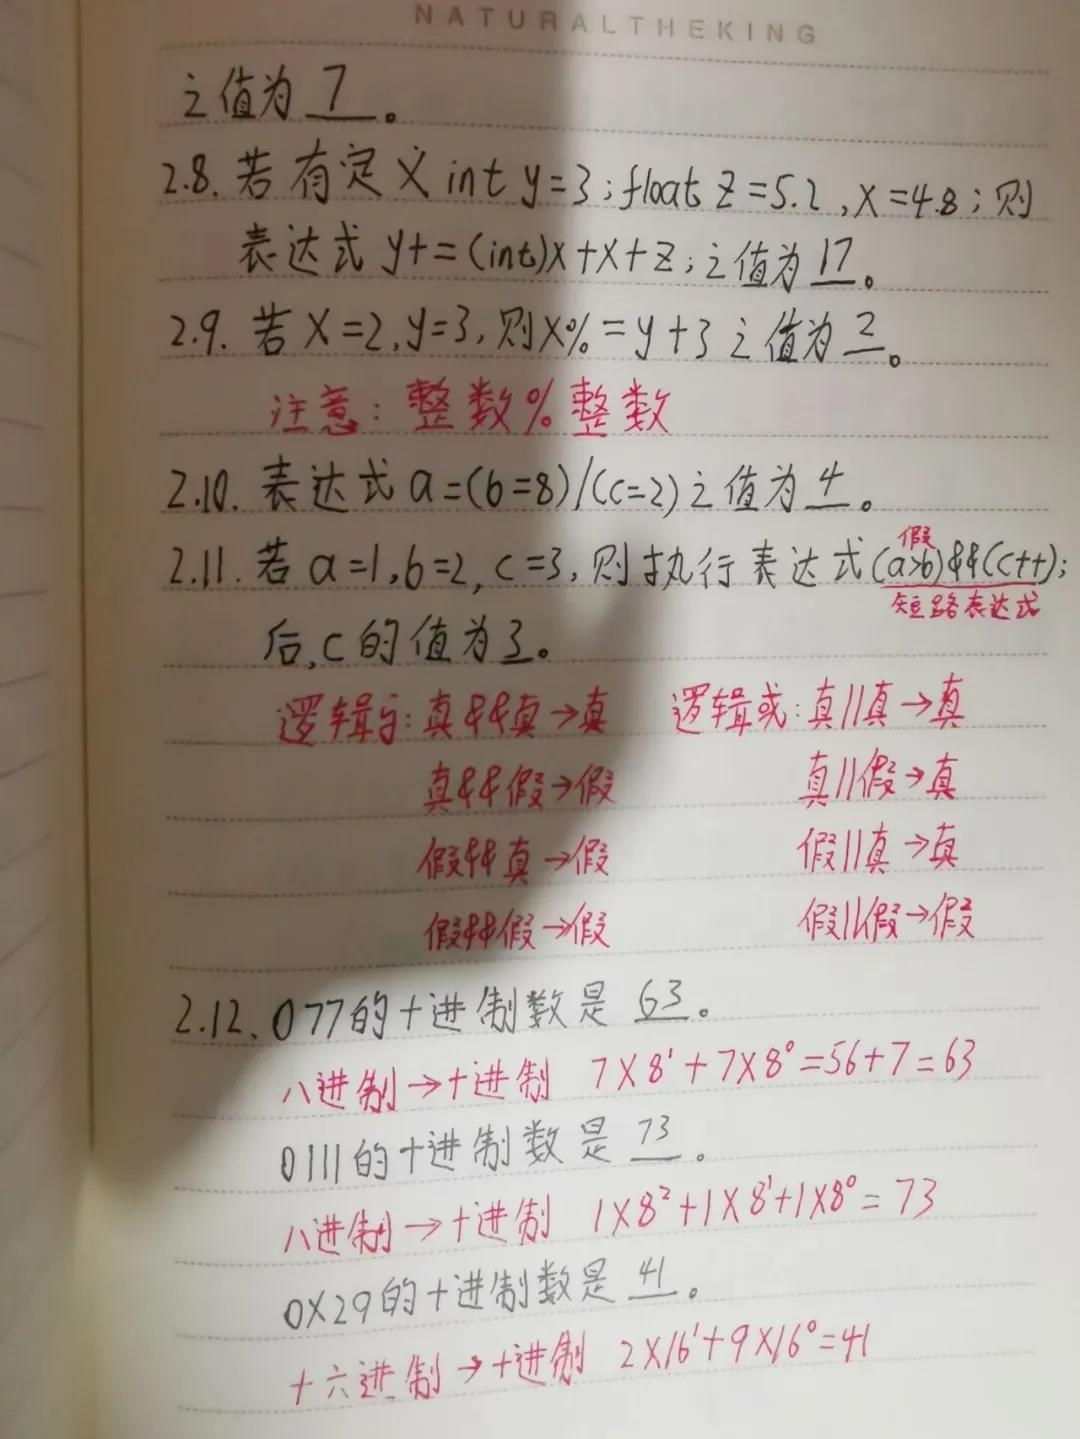 NATURALTHEKING
之值为 7 。
2.8. 若有定义 int y=3;float z=5.2,x=4.8;则
表达式 y+=(int)x+x+z;之值为17。
2.9. 若x=2,y=3,则x%=y+3之值为2。
注意:整数%整数
2.10. 表达式a=(b=8)/(c=2)之值为4。
假
2.11. 若a=1,b=2,c=3,则执行表达式(a>b)&&(c++);
短路表达式
后,c的值为3。
逻辑与:真&&真→真 逻辑或:真||真→真
真&&假→假 真||假→真
假&&真→假 假||真→真
假&&假→假 假||假→假
2.12. 077的十进制数是 63 。
八进制→十进制 7×8¹+7×8⁰=56+7=63
0111的十进制数是 73 。
八进制→十进制 1×8²+1×8¹+1×8⁰=73
0X29的十进制数是 41 。
十六进制→十进制 2×16¹+9×16⁰=41